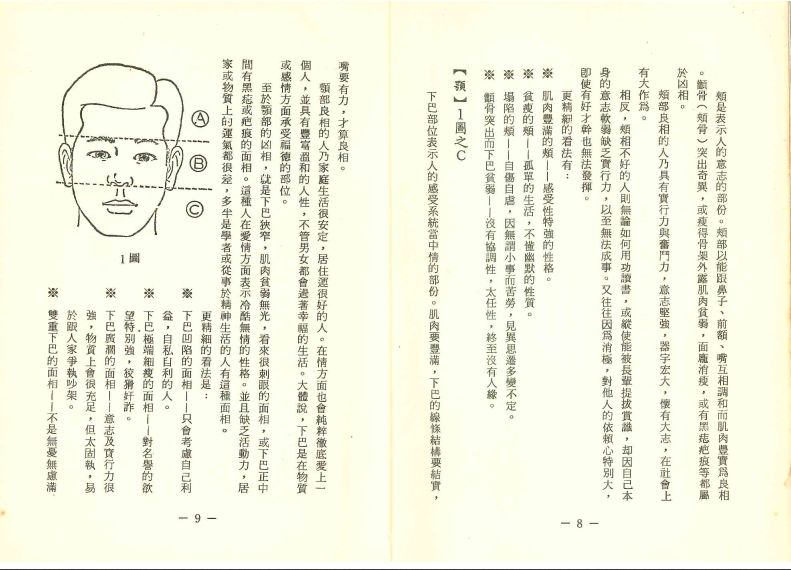 頰是表示人的意志的部份。頰部以能跟鼻子、前額、嘴互相調和而肌肉豐實為良相
。顴骨（頰骨）突出奇異，或瘦得骨架外露肌肉貧弱，面龐消瘦，或有黑痣疤痕等都屬
於凶相。
頰部良相的人乃具有實行力與奮鬥力，意志堅強，器宇宏大，懷有大志，在社會上
有大作為。
相反，頰相不好的人則無論如何用功讀書，或縱使能被長輩提拔賞識，却因自己本
身的意志軟弱缺乏實行力，以至無法成事。又往往因為消極，對他人的依賴心特別大，
即使有好才幹也無法發揮。
更精細的看法有：
※ 肌肉豐滿的頰——感受性特強的性格。
※ 貧瘦的頰——孤單的生活，不懂幽默的性質。
※ 塌陷的頰——自傷自虐，因無謂小事而苦勞，見異思遷多變不定。
※ 顴骨突出而下巴貧弱——沒有協調性，太任性，終至沒有人緣。
【顎】1圖之C
下巴部位表示人的感受系統當中情的部份。肌肉要豐滿，下巴的線條結構要結實，
— 8 —
嘴要有力，才算良相。
顎部良相的人乃家庭生活很安定，居住運很好的人。在情方面也會純粹徹底愛上一
個人，並具有豐富溫和的人性，不管男女都會過著幸福的生活。大體說，下巴是在物質
或感情方面承受福德的部位。
至於顎部的凶相，就是下巴狹窄，肌肉貧弱無光，看來很刺眼的面相，或下巴正中
間有黑痣或疤痕的面相。這種人在愛情方面表示冷酷無情的性格。並且缺乏活動力，居
家或物質上的運氣都很差，多半是學者或從事於精神生活的人有這種面相。
更精細的看法是：
※ 下巴凹陷的面相——只會考慮自己利
益，自私自利的人。
※ 下巴極端細瘦的面相——對名譽的欲
望特別強，狡猾奸詐。
※ 下巴廣濶的面相——意志及實行力很
強，物質上會很充足，但太固執，易
於跟人家爭執吵架。
※ 雙重下巴的面相——不是無憂無慮滿
A
B
C
1圖
— 9 —